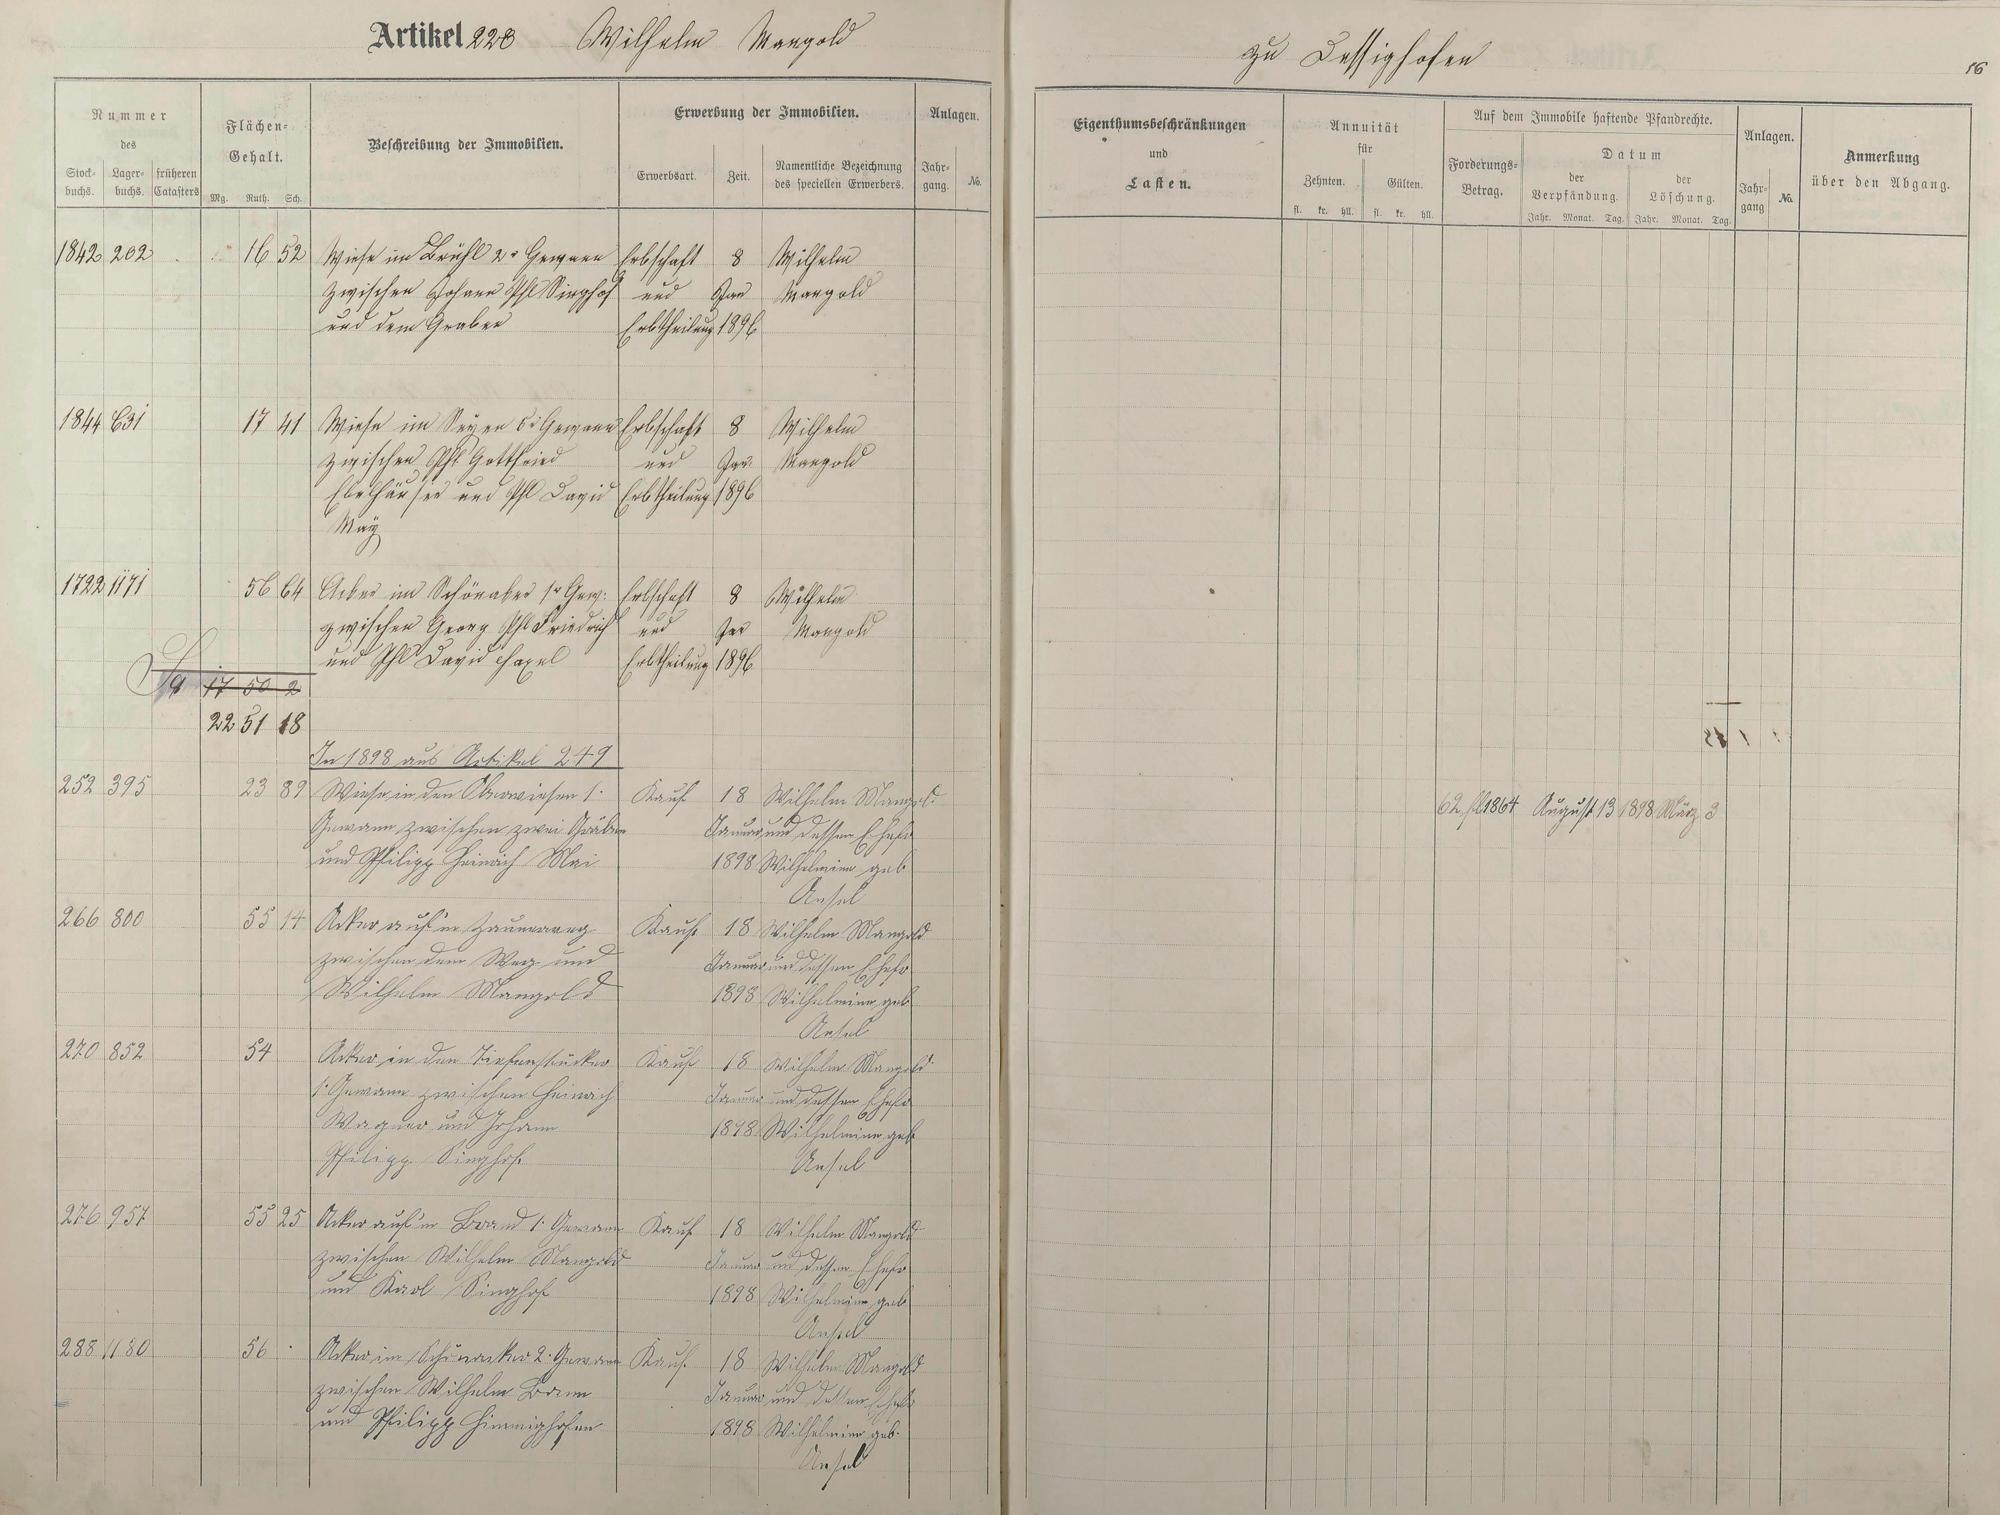 Artikel 228 Wilhelm Mangold
zu Dessighofen
16
Nummer
des
Stock-
buchs.
Lager-
buchs.
früheren
Catasters
Flächen-
Gehalt.
Mg. Ruth. Sch.
Beschreibung der Immobilien.
Erwerbung der Immobilien.
Erwerbsart.
Zeit.
Namentliche Bezeichnung
des speciellen Erwerbers.
Anlagen.
Jahr-
gang.
No.
Eigenthumsbeschränkungen
und
Lasten.
Annuität
für
Zehnten.
Gülten.
fl. kr. hll. fl. kr. hll.
Auf dem Immobile haftende Pfandrechte.
Forderungs-
Betrag.
Datum
der
Verpfändung.
der
Löschung.
Jahr. Monat. Tag. Jahr. Monat. Tag.
Anlagen.
Jahr-
gang
No.
Anmerkung
über den Abgang.
1842 202 16 52 Wiese im Brühl 2r Gewann Erbschaft 8 Wilhelm
zwischen Johann Phl Singhof und Jan Mangold
und dem Graben Erbtheilung 1896
1844 631 17 41 Wiese im Seyen 6r Gewann Erbschaft 8 Wilhelm
zwischen Phl Gottfried und Jan. Mangold
Ebelhäuser und Phl David Erbtheilung 1896
May
1722 1171 56 64 Acker im Schönacker 1r Gew: Erbschaft 8 Wilhelm
zwischen Georg Phl Friedrich und Jan Mangold
und Phl David Hazel Erbtheilung 1896
Sa 17 50 2
22 51 18
In 1898 aus Artikel 249
252 395 23 89 Wiese in den Oberwiesen 1. Kauf 18 Wilhelm Mangold 62 fl 1864 August 13 1898 März 3
Gewann zwischen zwei Gräben Januar und dessen Ehefr
und Philipp Heinrich Mai 1898 Wilhelmine geb
Ansel
266 800 55 14 Acker auf'm Zaunweeg Kauf 18 Wilhelm Mangold
zwischen dem Weg und Januar und dessen Ehefr
Wilhelm Mangold 1898 Wilhelmine geb
Ansel
270 852 54 Acker in den Tiefenstücker Kauf 18 Wilhelm Mangold
1. Gewann zwischen Heinrich Januar und dessen Ehefr
Wagner und Johann 1898 Wilhelmine geb
Philipp Singhof Ansel
276 957 55 25 Acker auf'm Brand 1. Gewann Kauf 18 Wilhelm Mangold
zwischen Wilhelm Mangold Januar und dessen Ehefr
und Karl Singhof 1898 Wilhelmine geb
Ansel
288 1180 56 . Acker im Schönacker 2. Gewann Kauf 18 Wilhelm Mangold
zwischen Wilhelm Bonn Januar und dessen Ehefr
und Philipp Himmighofen 1898 Wilhelmine geb.
Ansel